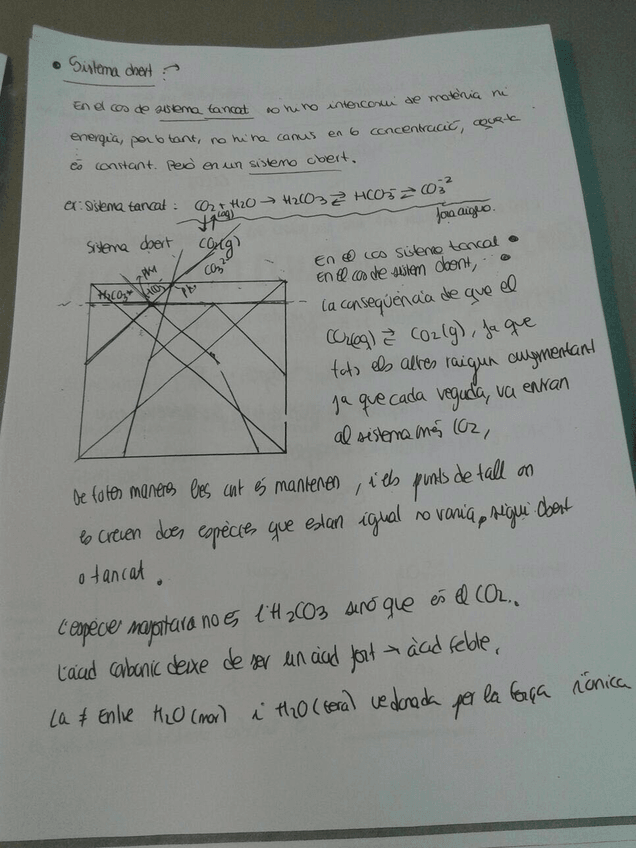 • Sistema obert :→
En el cas de sistema tancat no hi ha intercanvi de matèria ni
energia, per tant, no hi ha canvis en la concentració, aquesta
és constant. Però en un sistema obert.
ex: sistema tancat : CO2 + H2O → H2CO3 ⇄ HCO3⁻ ⇄ CO3⁻²
(aq)
fora aigua.
sistema obert CO2(g)
CO3²⁻
H2CO3*
HCO3⁻
pH
En el cas sistema tancal •
En el cas de sistem obert, •
La conseqüència de que el
CO2(aq) ⇄ CO2(g), ja que
tots els altres vaigun augmentant
ja que cada veguda, va entran
al sistema més CO2,
De totes maneres les cnt es mantenen, i els punts de tall on
es creuen dos espècies que estan igual no varia, sigui obert
o tancat.
L'espècie majoritara no és l'H2CO3 sinó que és el CO2.
L'àcid carbonic deixe de ser un àcid fort → àcid feble.
La ≠ entre H2O (mar) i H2O (terra) ve donada per la força iònica